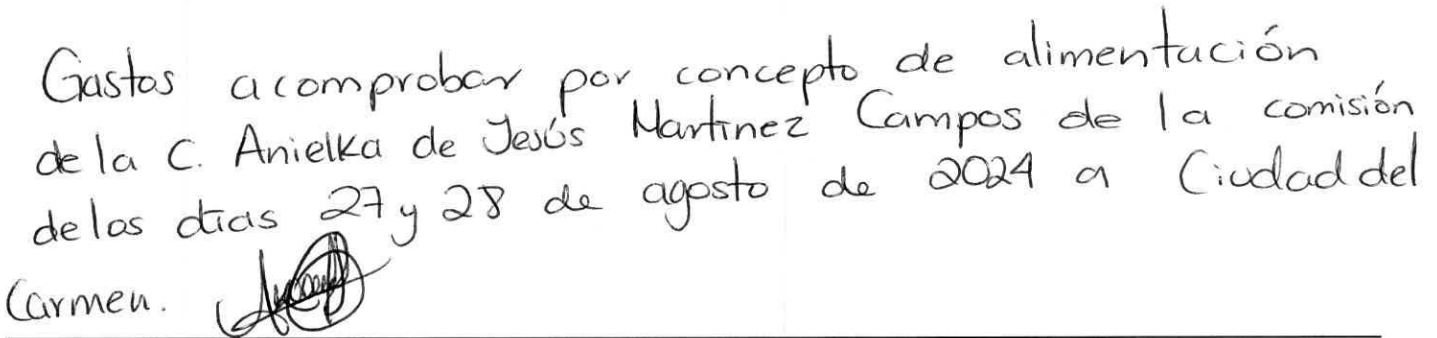 Gastos a comprobar por concepto de alimentación
de la C. Anielka de Jesús Martinez Campos de la comisión
de los días 27 y 28 de agosto de 2024 a Ciudad del
Carmen.